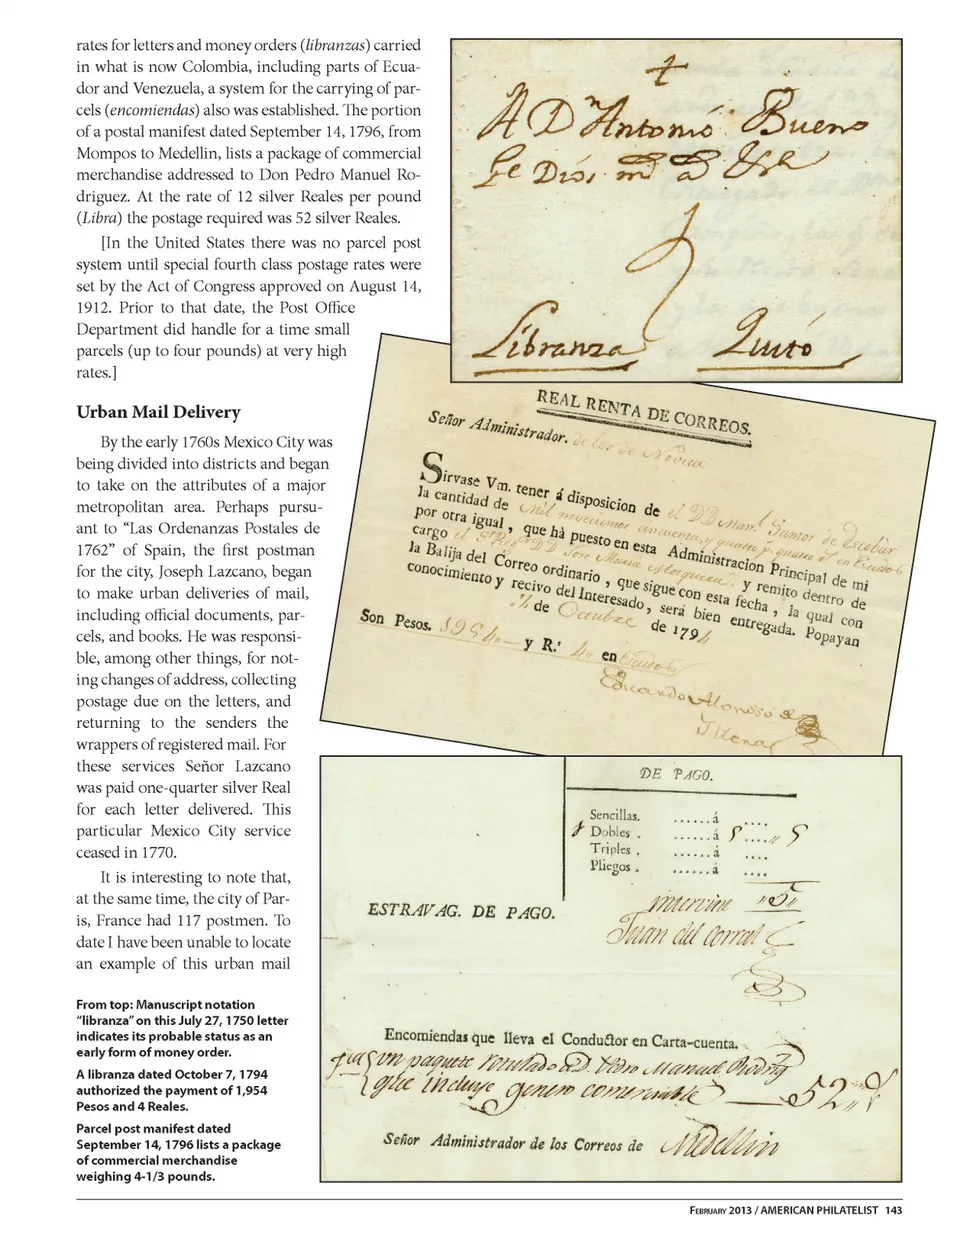 rates for letters and money orders (libranzas) carried
in what is now Colombia, including parts of Ecua-
dor and Venezuela, a system for the carrying of par-
cels (encomiendas) also was established. The portion
of a postal manifest dated September 14, 1796, from
Mompos to Medellin, lists a package of commercial
merchandise addressed to Don Pedro Manuel Ro-
driguez. At the rate of 12 silver Reales per pound
(Libra) the postage required was 52 silver Reales.
[In the United States there was no parcel post
system until special fourth class postage rates were
set by the Act of Congress approved on August 14,
1912. Prior to that date, the Post Office
Department did handle for a time small
parcels (up to four pounds) at very high
rates.]
Urban Mail Delivery
By the early 1760s Mexico City was
being divided into districts and began
to take on the attributes of a major
metropolitan area. Perhaps pursu-
ant to “Las Ordenanzas Postales de
1762” of Spain, the first postman
for the city, Joseph Lazcano, began
to make urban deliveries of mail,
including official documents, par-
cels, and books. He was responsi-
ble, among other things, for not-
ing changes of address, collecting
postage due on the letters, and
returning to the senders the
wrappers of registered mail. For
these services Señor Lazcano
was paid one-quarter silver Real
for each letter delivered. This
particular Mexico City service
ceased in 1770.
It is interesting to note that,
at the same time, the city of Par-
is, France had 117 postmen. To
date I have been unable to locate
an example of this urban mail
From top: Manuscript notation
“libranza” on this July 27, 1750 letter
indicates its probable status as an
early form of money order.
A libranza dated October 7, 1794
authorized the payment of 1,954
Pesos and 4 Reales.
Parcel post manifest dated
September 14, 1796 lists a package
of commercial merchandise
weighing 4-1/3 pounds.
A Dn Antonio Bueno
Ge Dios
Libranza Quito
REAL RENTA DE CORREOS.
Señor Administrador. de
Sirvase Vm. tener á disposicion de el D.D. Manl. Santos de Escobar
la cantidad de Mil novecientos cincuenta, y quatro p. quatro rl. en
por otra igual, que hà puesto en esta Administracion Principal de mi
cargo el D.D. Jose Maria Mosquera, y remito dentro de
la Balija del Correo ordinario, que sigue con esta fecha, la qual con
conocimiento y recivo del Interesado, será bien entregada. Popayan
7 de Octubre de 1794
Son Pesos. 1954 y R.s 4 en
Eduardo Alonso de
Illena
DE PAGO.
Sencillas. ......á ....
Dobles . ......á 5 .... 5
Triples . ......á ....
Pliegos . ......á ....
Intervine 5
Juan del Corral
ESTRAVAG. DE PAGO.
Encomiendas que lleva el Conductor en Carta-cuenta.
un paquete rotulado a D. Pedro Manuel Rodrig
que incluye genero comerciable 52
Señor Administrador de los Correos de Medellin
February 2013 / AMERICAN PHILATELIST 143